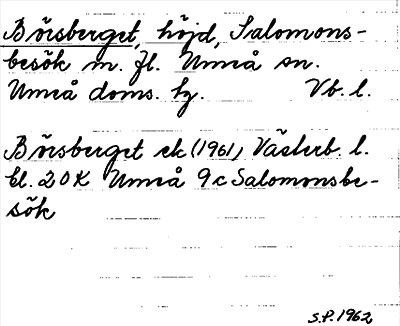 Börsberget, höjd, Salomons-
besök m. fl. Umeå sn.
Umeå doms. hg. Vb. l.
Börsberget ek (1961) Västerb. l.
bl. 20K Umeå 9c Salomonsbe-
sök
S.P. 1962